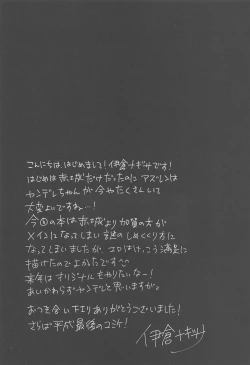 こんにちは、はじめまして！伊倉ナギサです！
はじめは赤城だけだったのに アズレンは
ヤンデレちゃんが今やたくさんいて
大変よいですね…！
今回の本は赤城より加賀の方が
メインになってしまい謎のしめくくり方に
なってしまいましたが、エロはけっこう満足に
描けたのでよかったです
来年はオリジナルもやりたいなー！
あいかわらずヤンデレと思いますが。
おつき合い下さりありがとうございました！
さらば平成最後のコミケ！
伊倉ナギサ